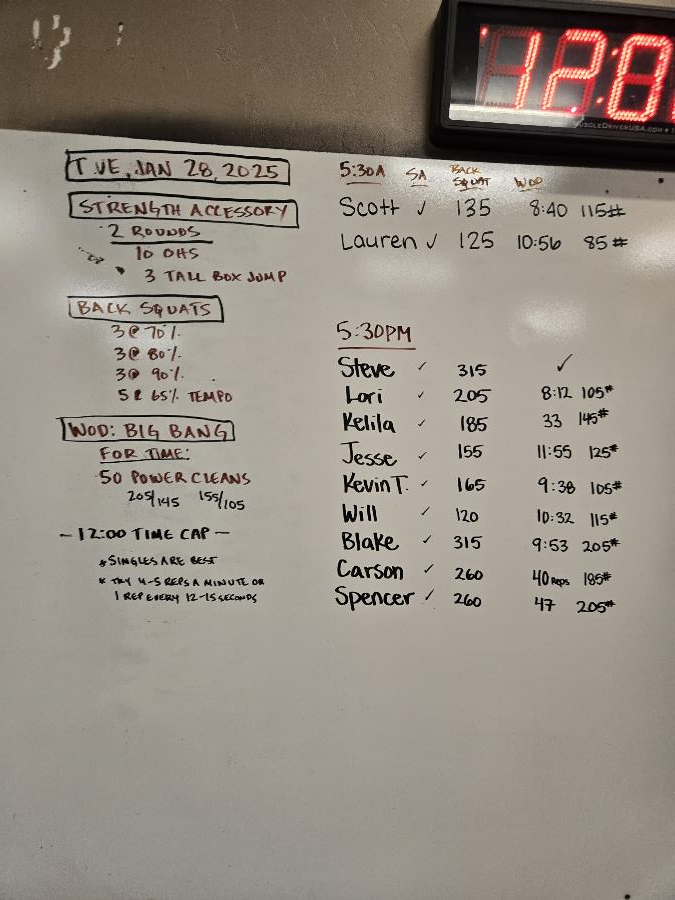 12:0
MUSCLEDRIVERUSA.COM
TUE, JAN 28, 2025
STRENGTH ACCESSORY
2 ROUNDS
10 OHS
3 TALL BOX JUMP
BACK SQUATS
3@ 70%
3@ 80%
3@ 90%
5@ 65% TEMPO
WOD: BIG BANG
FOR TIME:
50 POWER CLEANS
205/145 155/105
- 12:00 TIME CAP -
* SINGLES ARE BEST
* TRY 4-5 REPS A MINUTE OR
1 REP EVERY 12-15 SECONDS
5:30A SA BACK SQUAT WOD
Scott ✓ 135 8:40 115#
Lauren ✓ 125 10:56 85#
5:30PM
Steve ✓ 315 ✓
Lori ✓ 205 8:12 105#
Kelila ✓ 185 33 145#
Jesse ✓ 155 11:55 125#
Kevin T. ✓ 165 9:38 105#
Will ✓ 120 10:32 115#
Blake ✓ 315 9:53 205#
Carson ✓ 260 40 Reps 185#
Spencer ✓ 260 47 205#